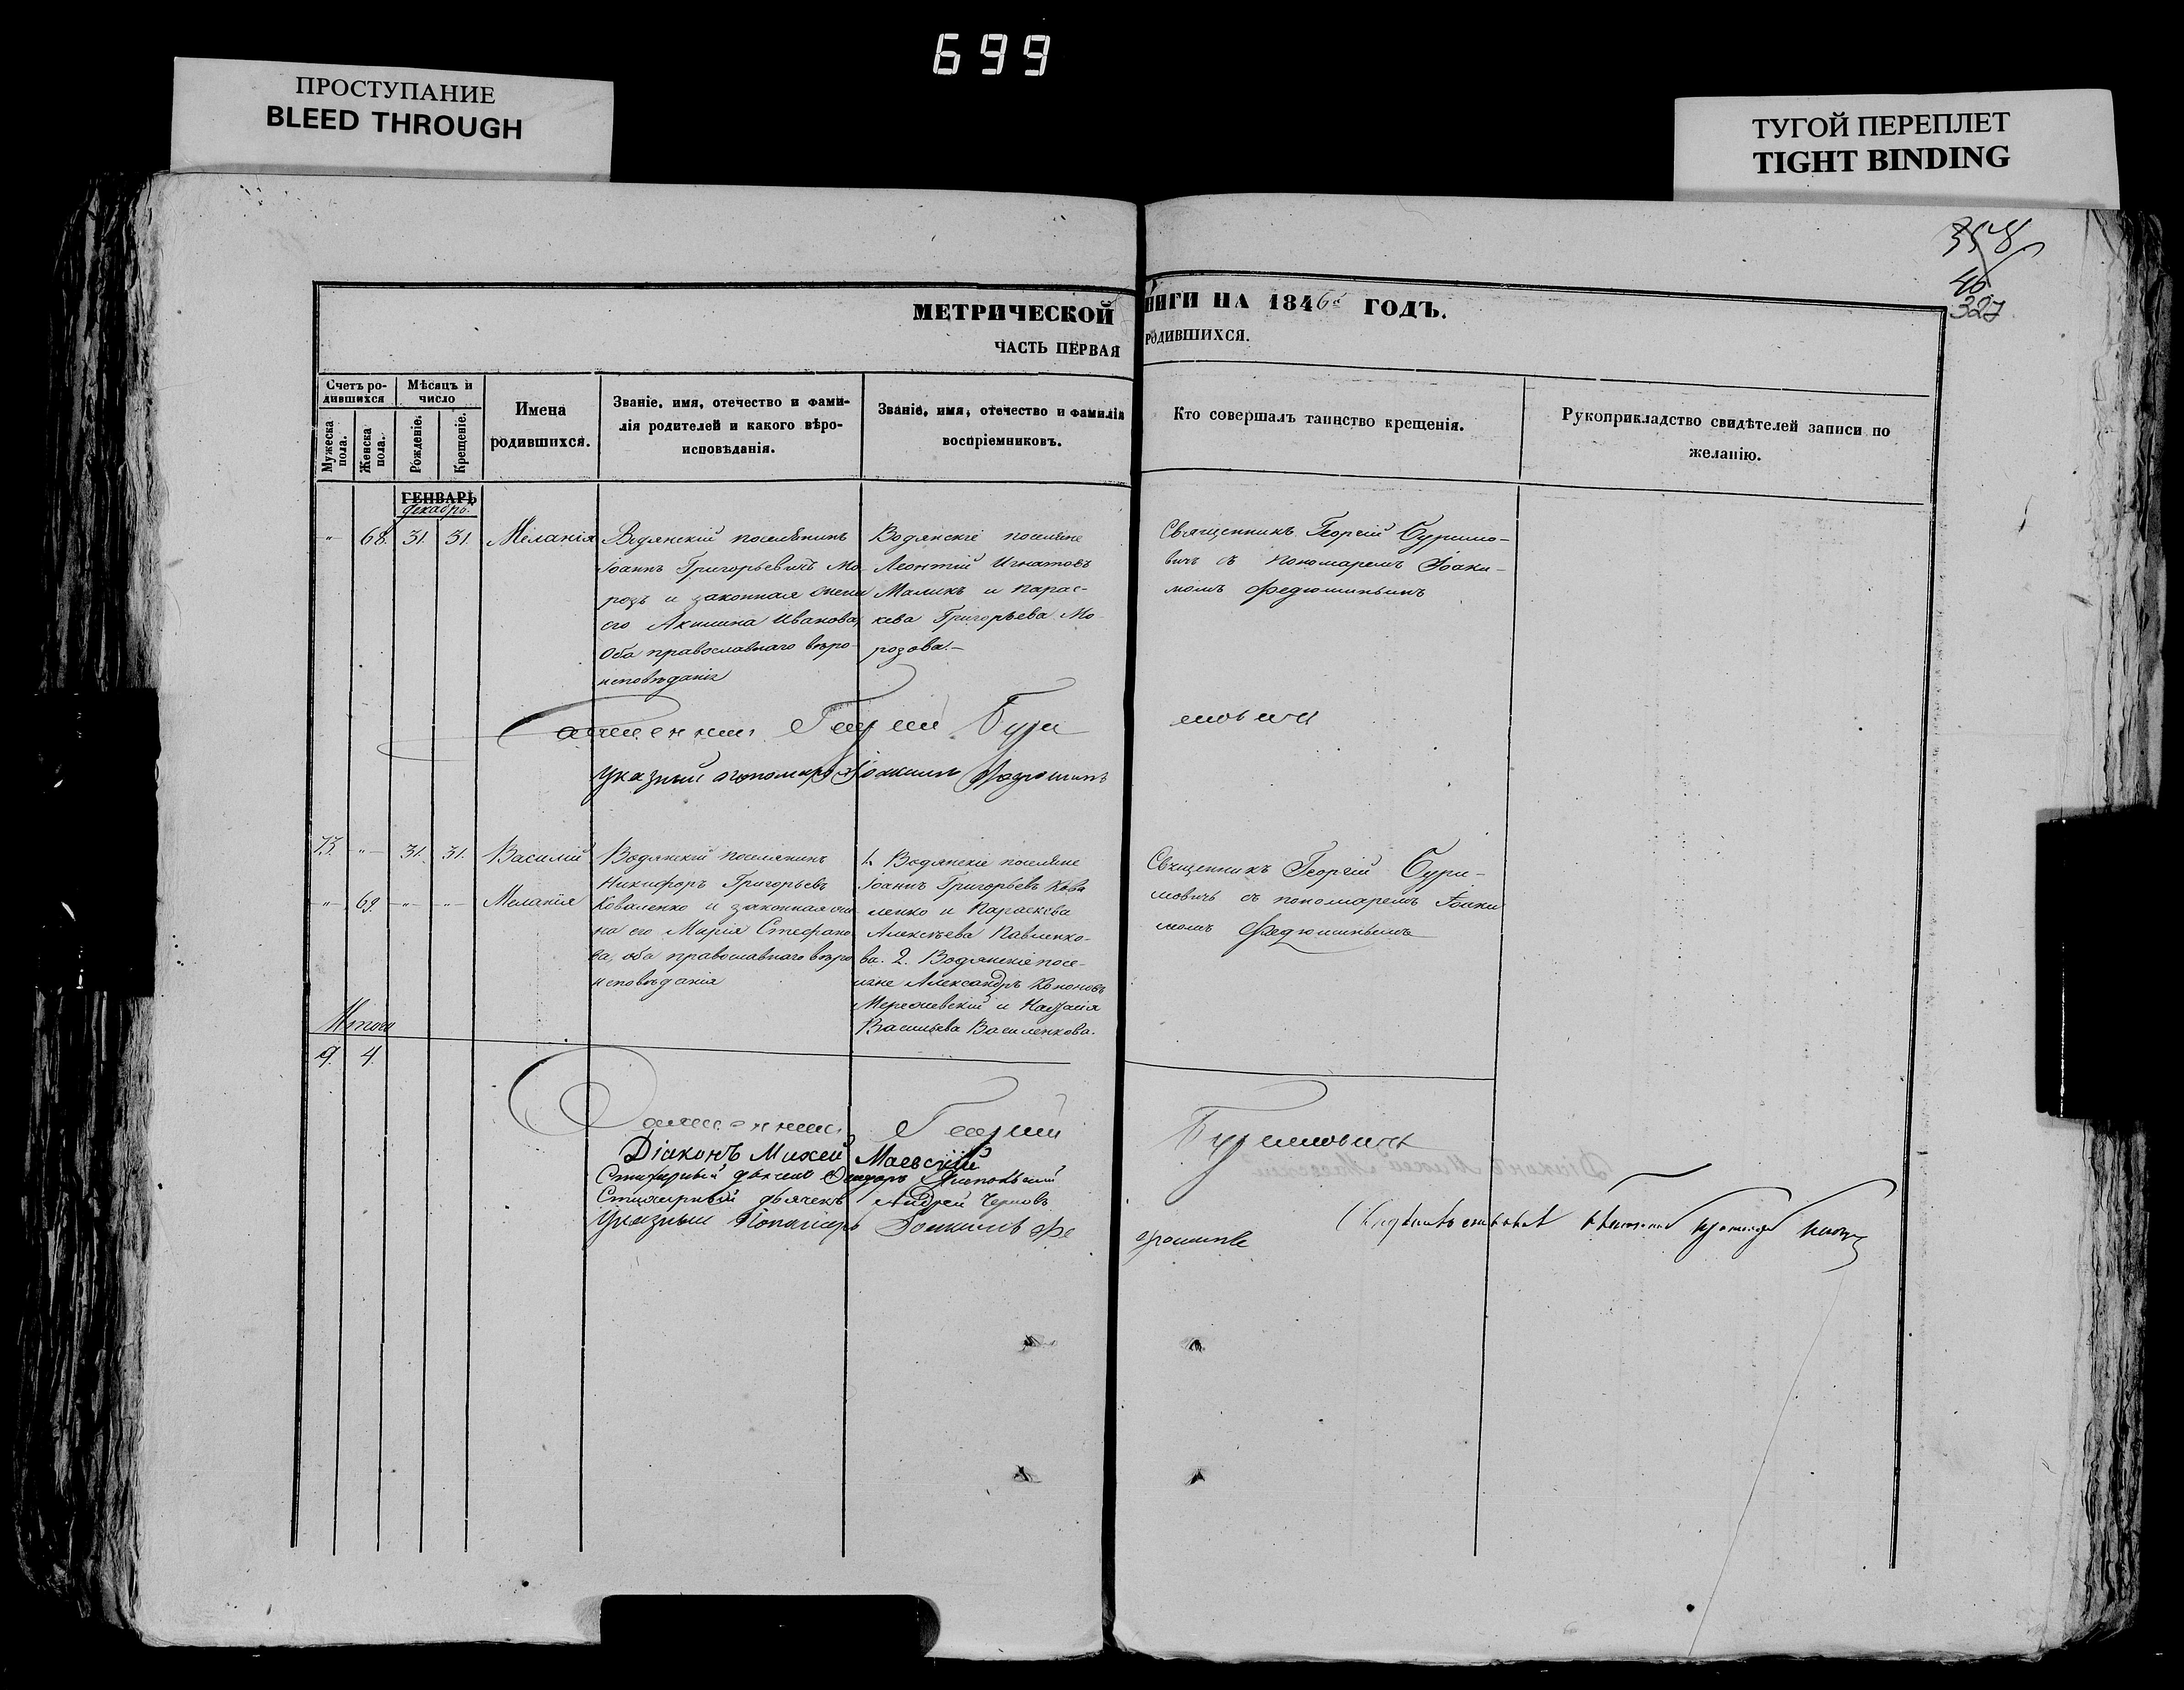 699
ПРОСТУПАНИЕ
BLEED THROUGH
ТУГОЙ ПЕРЕПЛЕТ
TIGHT BINDING
358
46
327
МЕТРИЧЕСКОЙ НИГИ НА 1846й ГОДЪ.
ЧАСТЬ ПЕРВАЯ РОДИВШИХСЯ.
Счетъ ро-
дившихся
Мужеска
пола.
Женска
пола.
Мѣсяцъ и
число
Рожденіе.
Крещеніе.
Имена
родившихся.
Званіе, имя, отечество и фами-
лія родителей и какого вѣро-
исповѣданія.
Званіе, имя, отечество и фамилія
воспріемниковъ.
Кто совершалъ таинство крещенія.
Рукоприкладство свидѣтелей записи по
желанію.
ГЕНВАРЬ
декабрь.
" 68. 31. 31. Меланія
Водянскій поселянинъ
Іоаннъ Григорьевичъ Мо-
розъ и законная жена
его Акилина Иванова,
Оба православнаго вѣро-
исповѣданія
Водянскіе поселяне
Леонтій Игнатовъ
Маликъ и Парас-
кева Григорьева Мо-
розова.-
Священникъ Георгій Буримо-
вичъ съ пономаремъ Іоаки-
момъ Федюшинымъ
Священникъ Георгій Бури мовичъ
Указный пономарь Іоакимъ Федюшинъ
73. " 31. 31. Василій
" 69. " " Меланія
Водянскій поселянинъ
Никифоръ Григорьевъ
Коваленко и законная же-
на его Марія Стефано-
ва, оба православнаго вѣро
исповѣданія
1. Водянскіе поселяне
Іоаннъ Григорьевъ Кова
ленко и Параскева
Алексѣева Павленко-
ва. 2. Водянскіе посе-
ляне Александръ Кононовъ
и Наталія
Васильева Василенкова.
Священникъ Георгій Бури-
мовичъ съ пономаремъ Іоаки
момъ Федюшинымъ
Итого
9. 4.
Священникъ Георгій Буримовичъ
Діаконъ Михей Маевскій
Стихарный дьячекъ
Стихарный дьячекъ Андрей Черновъ
Указный Пономарь Іоакимъ Фе дюшинъ